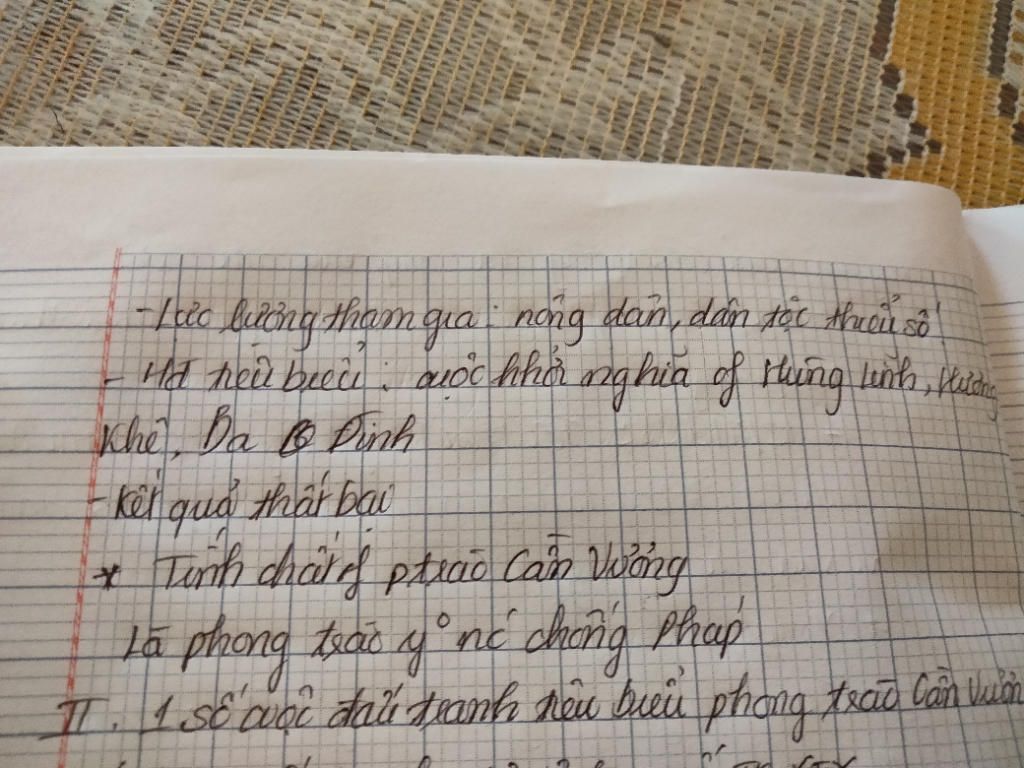 - Lực lượng tham gia : nông dân, dân tộc thiểu số
- HĐ tiêu biểu : cuộc khởi nghĩa of Hùng Lĩnh, Hương
Khê, Ba Đình
- Kết quả thất bại
* Tính chất of ptrào Cần Vương
Là phong trào y° nc' chống Pháp
II. 1 số cuộc đấu tranh tiêu biểu phong trào Cần Vươn